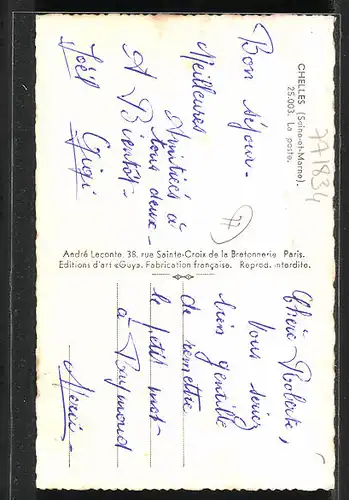 CHELLES (Seine-et-Marne).
25.003. La poste.
771834
77
Bon séjour.
Meilleures
Amitiés à
tous deux -
A Bientôt -
Joël Gigi
André Leconte. 38, rue Sainte-Croix de la Bretonnerie Paris.
Editions d'art «Guy». Fabrication française. Reprod. interdite.
Chère Roberte,
Vous seriez
bien gentille
de remettre
le petit mot
à Raymond
Merci